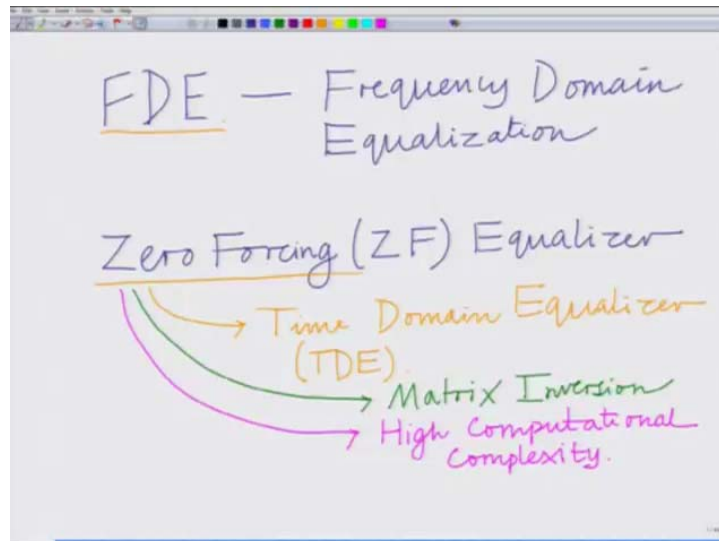 FDE — Frequency Domain
Equalization
Zero Forcing (ZF) Equalizer
Time Domain Equalizer
(TDE).
Matrix Inversion
High Computational
Complexity.